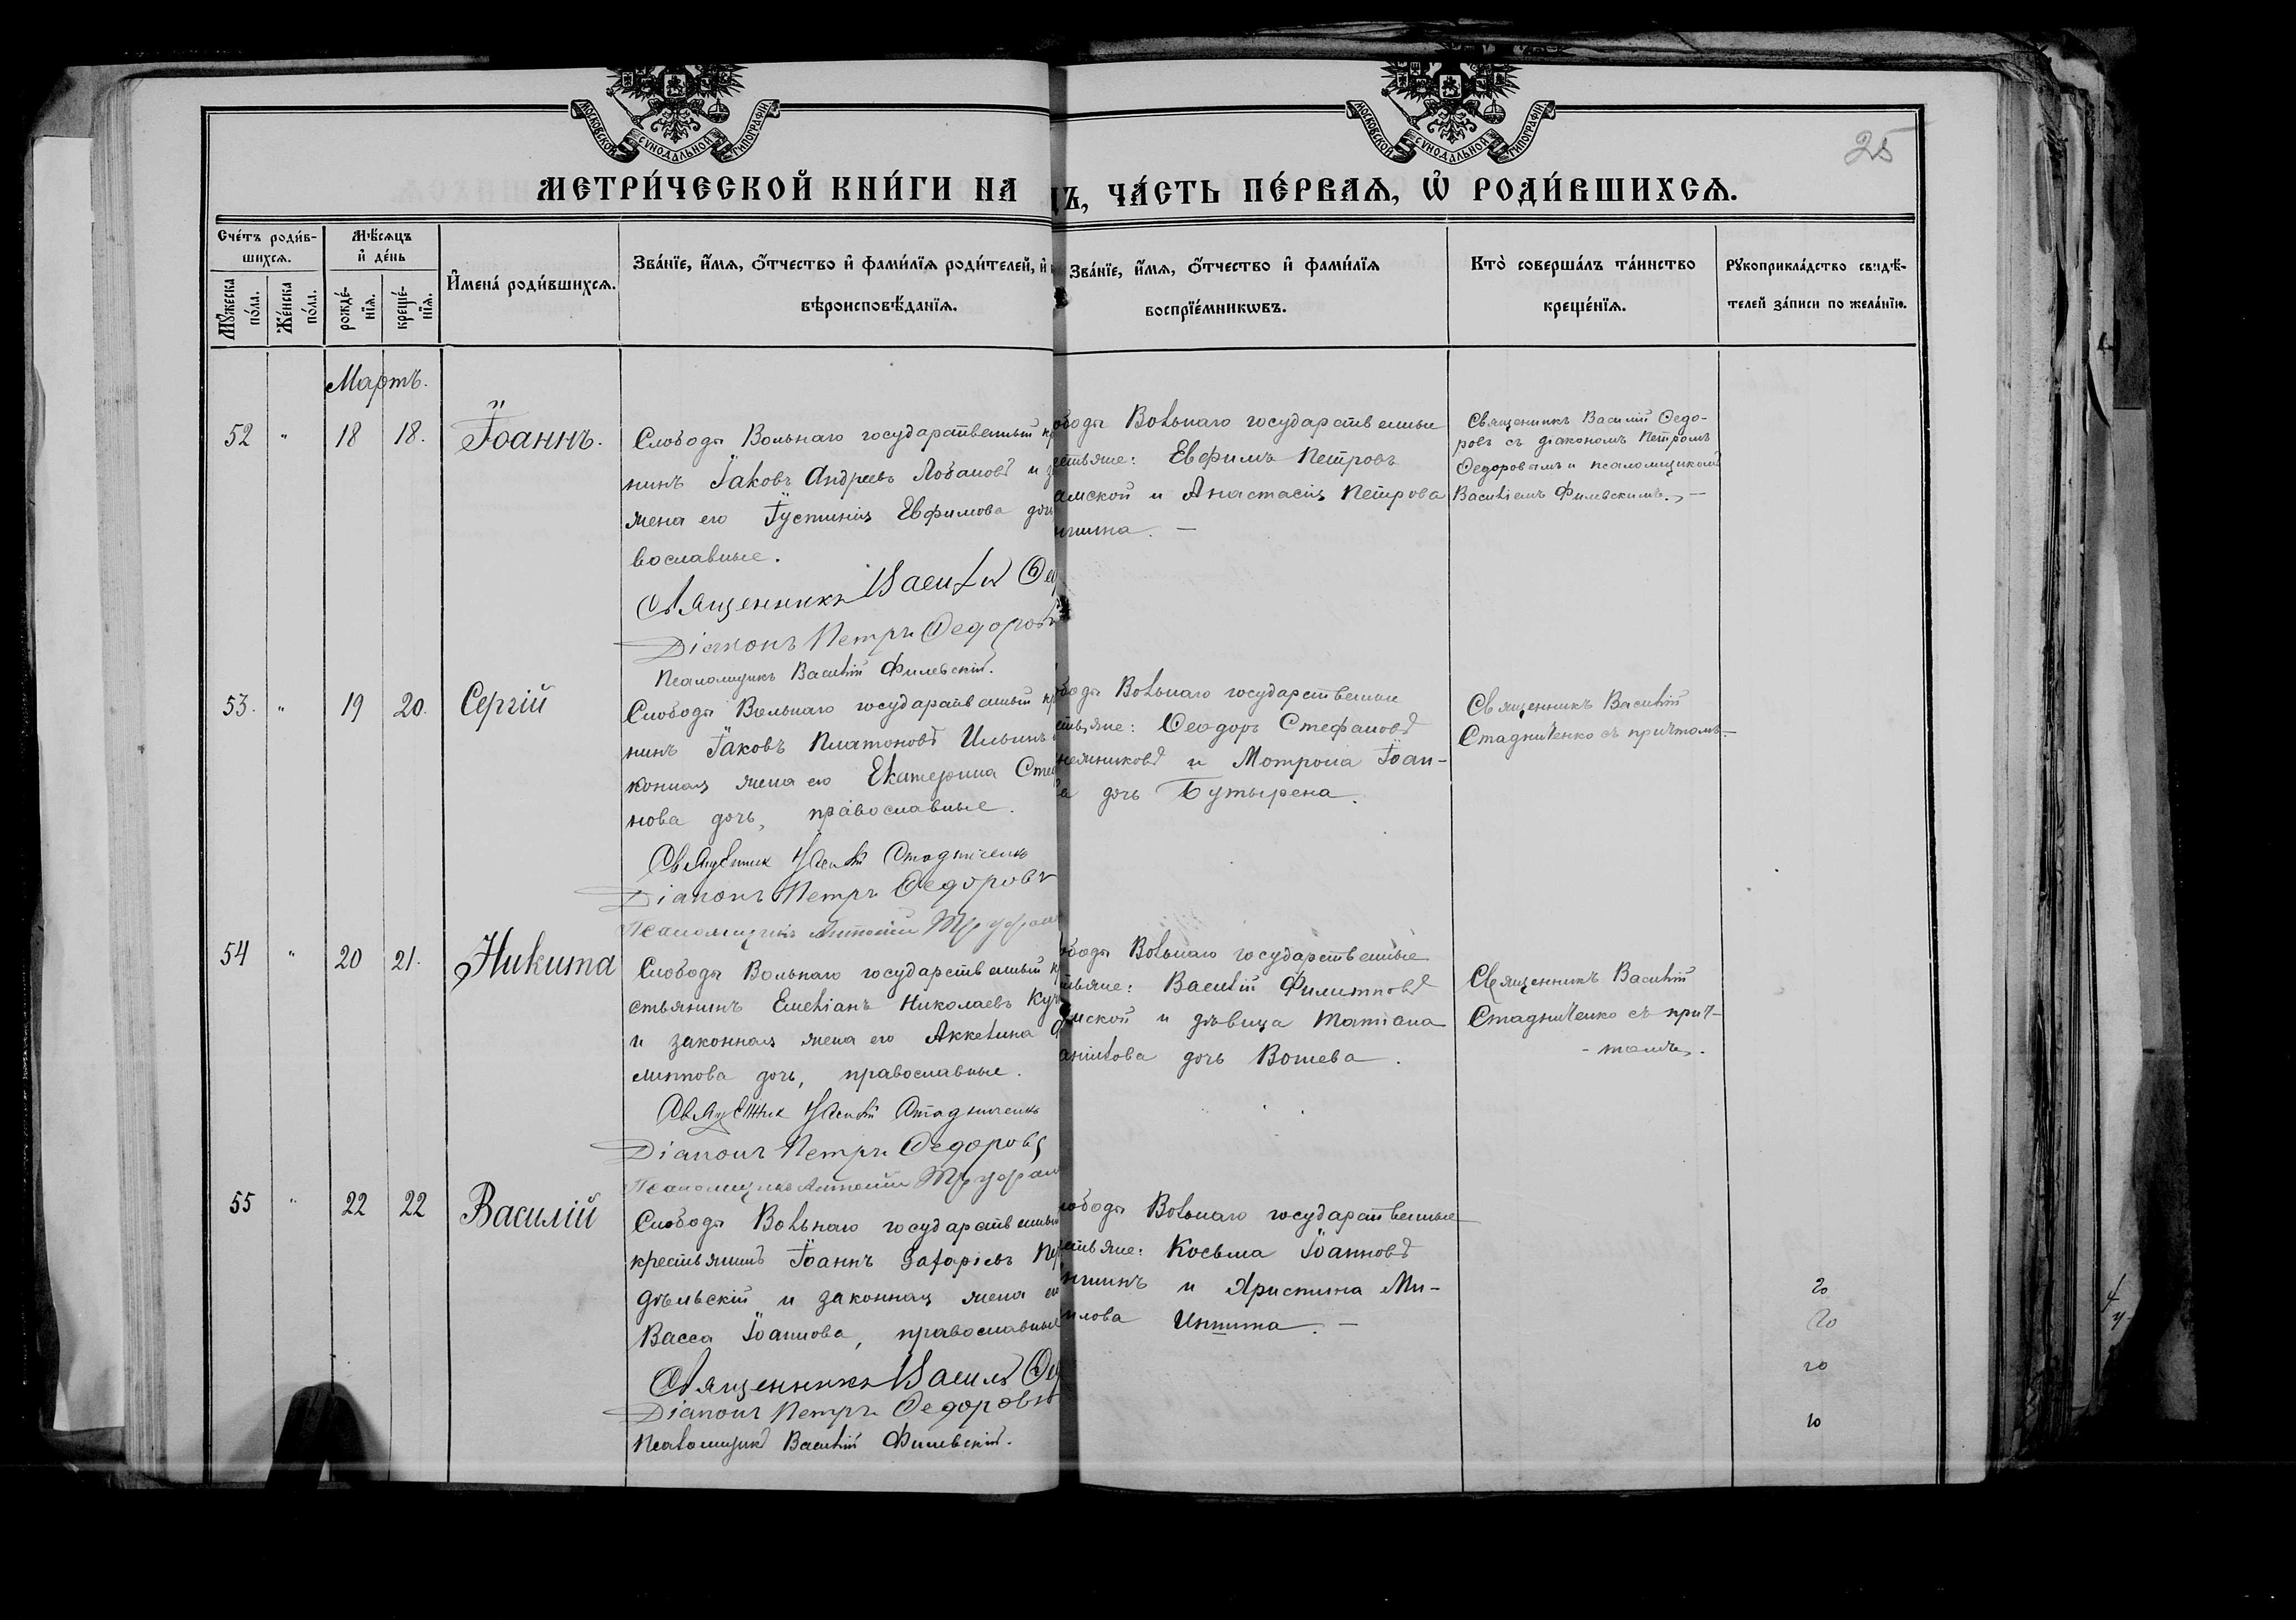 МОСКОВСКОЙ СѴНОДАЛЬНОЙ ТИПОГРАФІИ
МОСКОВСКОЙ СѴНОДАЛЬНОЙ ТИПОГРАФІИ
25
МЕТРИ́ЧЕСКОЙ КНИ́ГИ НА
ЧА́СТЬ ПЕ́РВАѦ, Ѡ҆ РОДИ́ВШИХСѦ.
Сче́тъ роди́в-
шихсѧ.
Мѣ́сѧцъ
и҆ де́нь
Мꙋ́жеска
по́ла.
Же́нска
по́ла.
рожде́-
нїѧ.
креще́-
нїѧ.
И҆мена̀ роди́вшихсѧ.
Зва́нїе, и҆́мѧ, ѻ҆́тчество и҆ фами́лїѧ роди́телей, и҆
вѣроисповѣ́данїѧ.
Зва́нїе, и҆́мѧ, ѻ҆́тчество и҆ фами́лїѧ
воспрїе́мникѡвъ.
Кто̀ соверша́лъ та́инство
креще́нїѧ.
Рꙋкоприкла́дство свидѣ́-
телей за́писи по жела́нїю.
Мартъ.
52 " 18 18. Іоаннъ.
Слободы Вольнаго государственный кр
нинъ Іаковъ Андреевъ Лобановъ и з
жена его Іустинія Евфимова доч
вославные.
Священникъ Василій Ѳед
Діаконъ Петръ Ѳедоровъ
Псаломщикъ Василій Филевскій.
ободы Вольнаго государственные
естьяне: Евфимъ Петровъ
амской и Анастасія Петрова
Священникъ Василій Ѳедо-
ровъ съ діакономъ Петромъ
Ѳедоровымъ и псаломщикомъ
Василіемъ Филевскимъ. —
53. " 19 20. Сергій
Слободы Вольнаго государственный кр
нинъ Іаковъ Платоновъ Ильинъ
конная жена его Екатерина Сте
нова дочь, православные.
Священник Василій Стадниченко
Діаконъ Петръ Ѳедоровъ
Псаломщикъ Антоній
боды Вольнаго государственные
стьяне: Ѳеодоръ Стефановъ
и Мотрона Іоан-
а дочь Бутырена.
Священникъ Василій
Стадниченко съ причтомъ. —
54 " 20 21. Никита
Слободы Вольнаго государственный к
стьянинъ Емеліанъ Николаевъ
и законная жена его Аккелина
липпова дочь, православные.
Священник Василій Стадниченко
Діаконъ Петръ Ѳедоровъ
Псаломщикъ Антоній
ободы Вольнаго государственные
тьяне: Василій Филипповъ
мской и дѣвица Татіана
аніилова дочь Вошева.
Священникъ Василій
Стадниченко съ прич-
- томъ.
55 " 22 22 Василій
Слободы Вольнаго государственный
крестьянинъ Іоаннъ Захаріевъ
дѣльскій и законная жена его
Васса Іоаннова, православные
Священникъ Василій Ѳед
Діаконъ Петръ Ѳедоровъ
Псаломщикъ Василій Филевскій.
ободы Вольнаго государственные
естьяне: Косьма Іоанновъ
ншинъ и Христина Ми-
илова Иншина. —
20
20
20
10